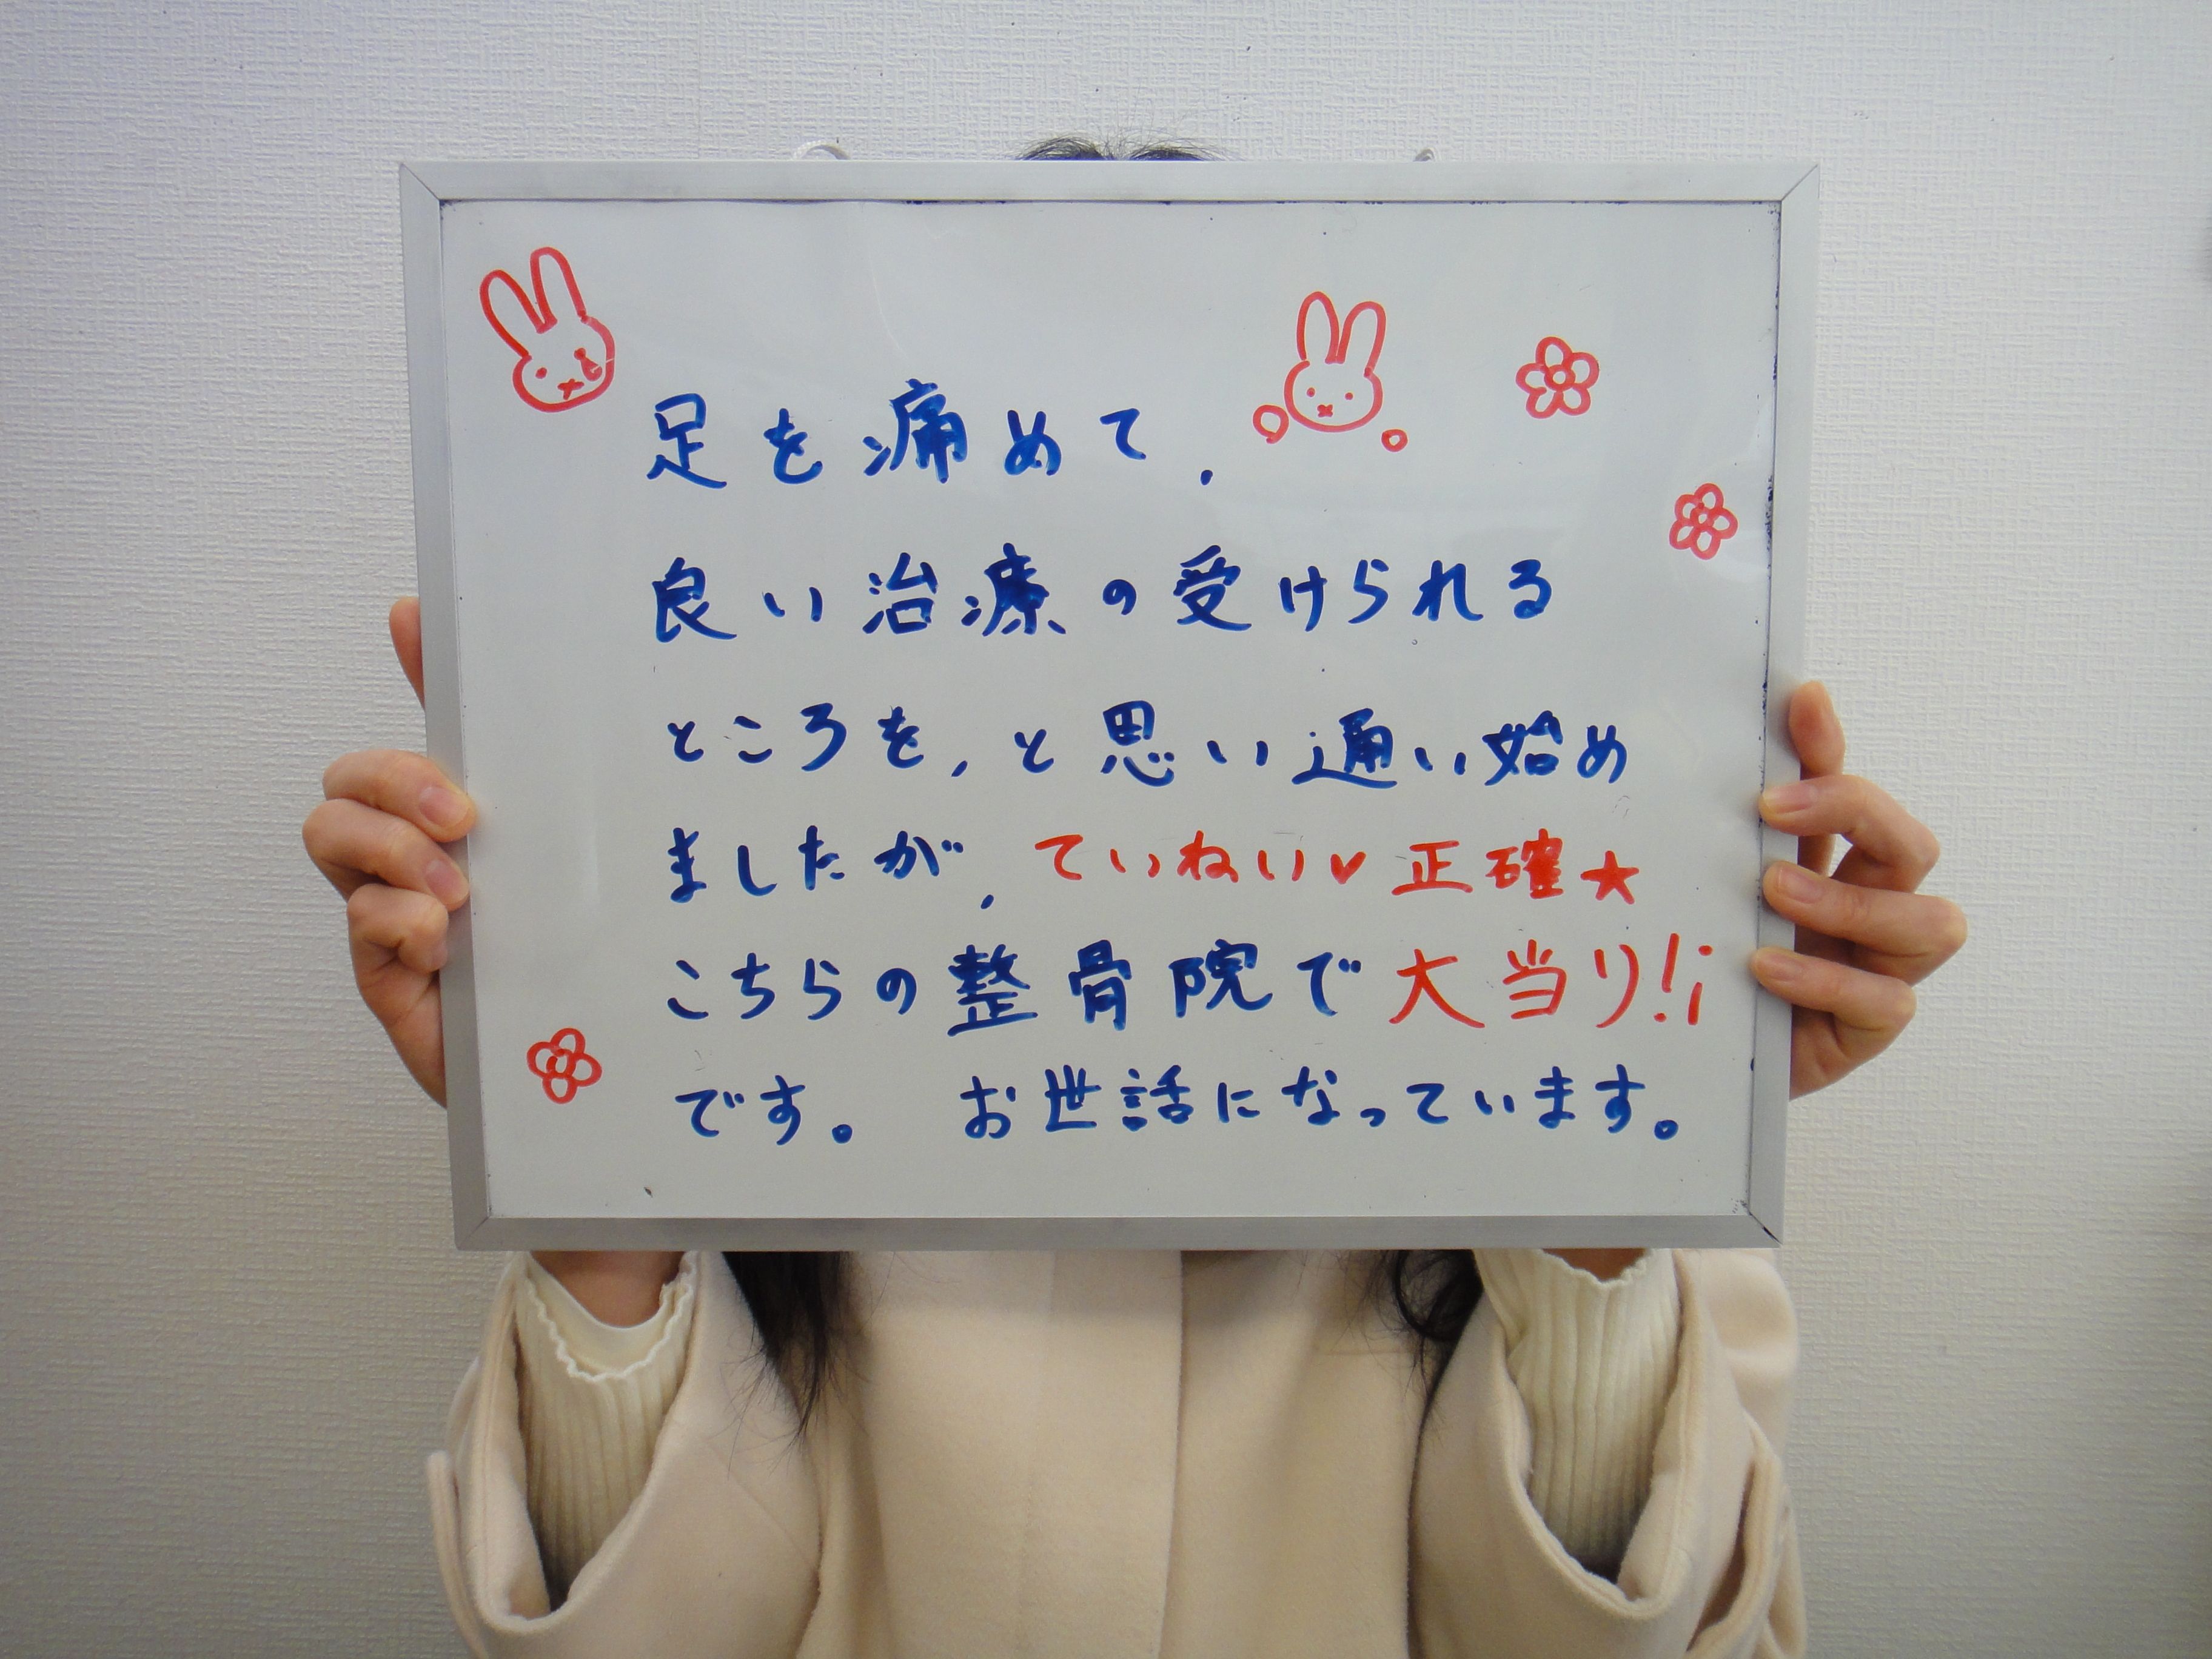 足を痛めて、
良い治療の受けられる
ところを、と思い通い始め
ましたが、ていねい♥正確★
こちらの整骨院で大当り!!
です。 お世話になっています。